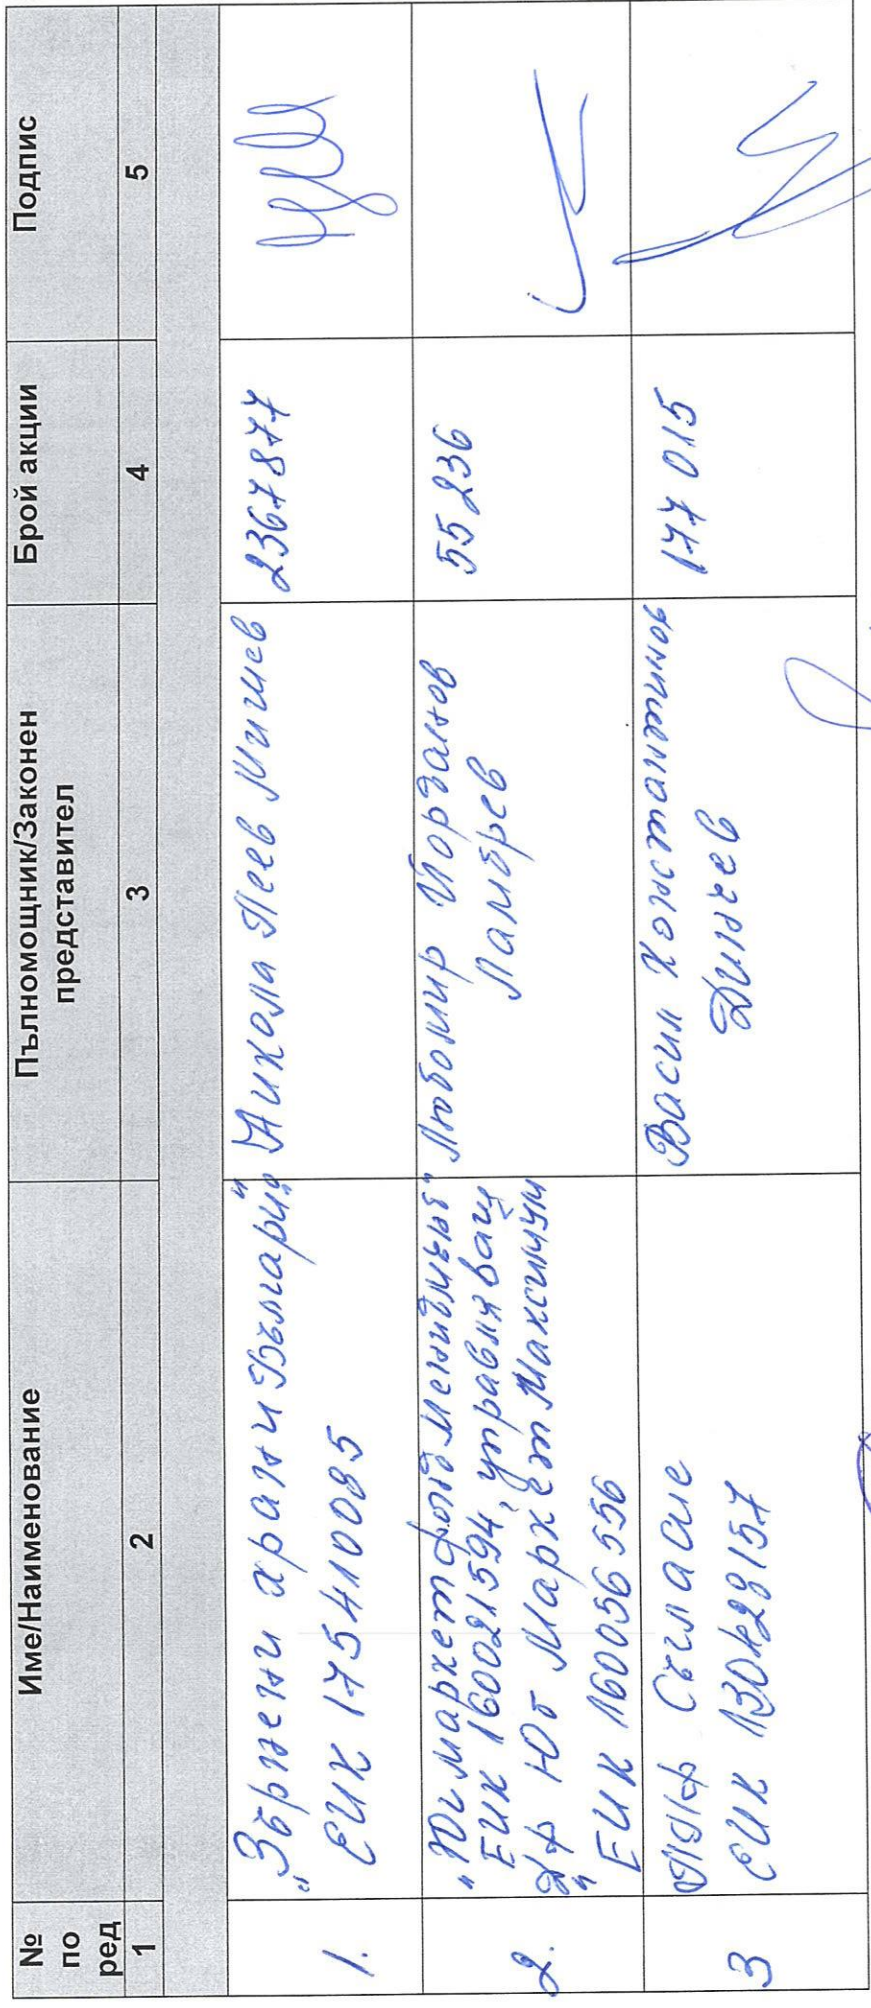 №
по
ред
Име/Наименование
Пълномощник/Законен
представител
Брой акции
Подпис
1
2
3
4
5
1.
"Зърнени храни България"
ЕИК 175410085
Никола Пеев Мишев
2367877
2.
"Юг маркет фонд мениджмънт"
ЕИК 160021594, управляващ
ДФ "Юг Маркет Максимум"
ЕИК 160056556
Любомир Йорданов
Ламбрев
55236
3
ППФ Съгласие
ЕИК 130428157
Васил Константинов
Динчев
177015